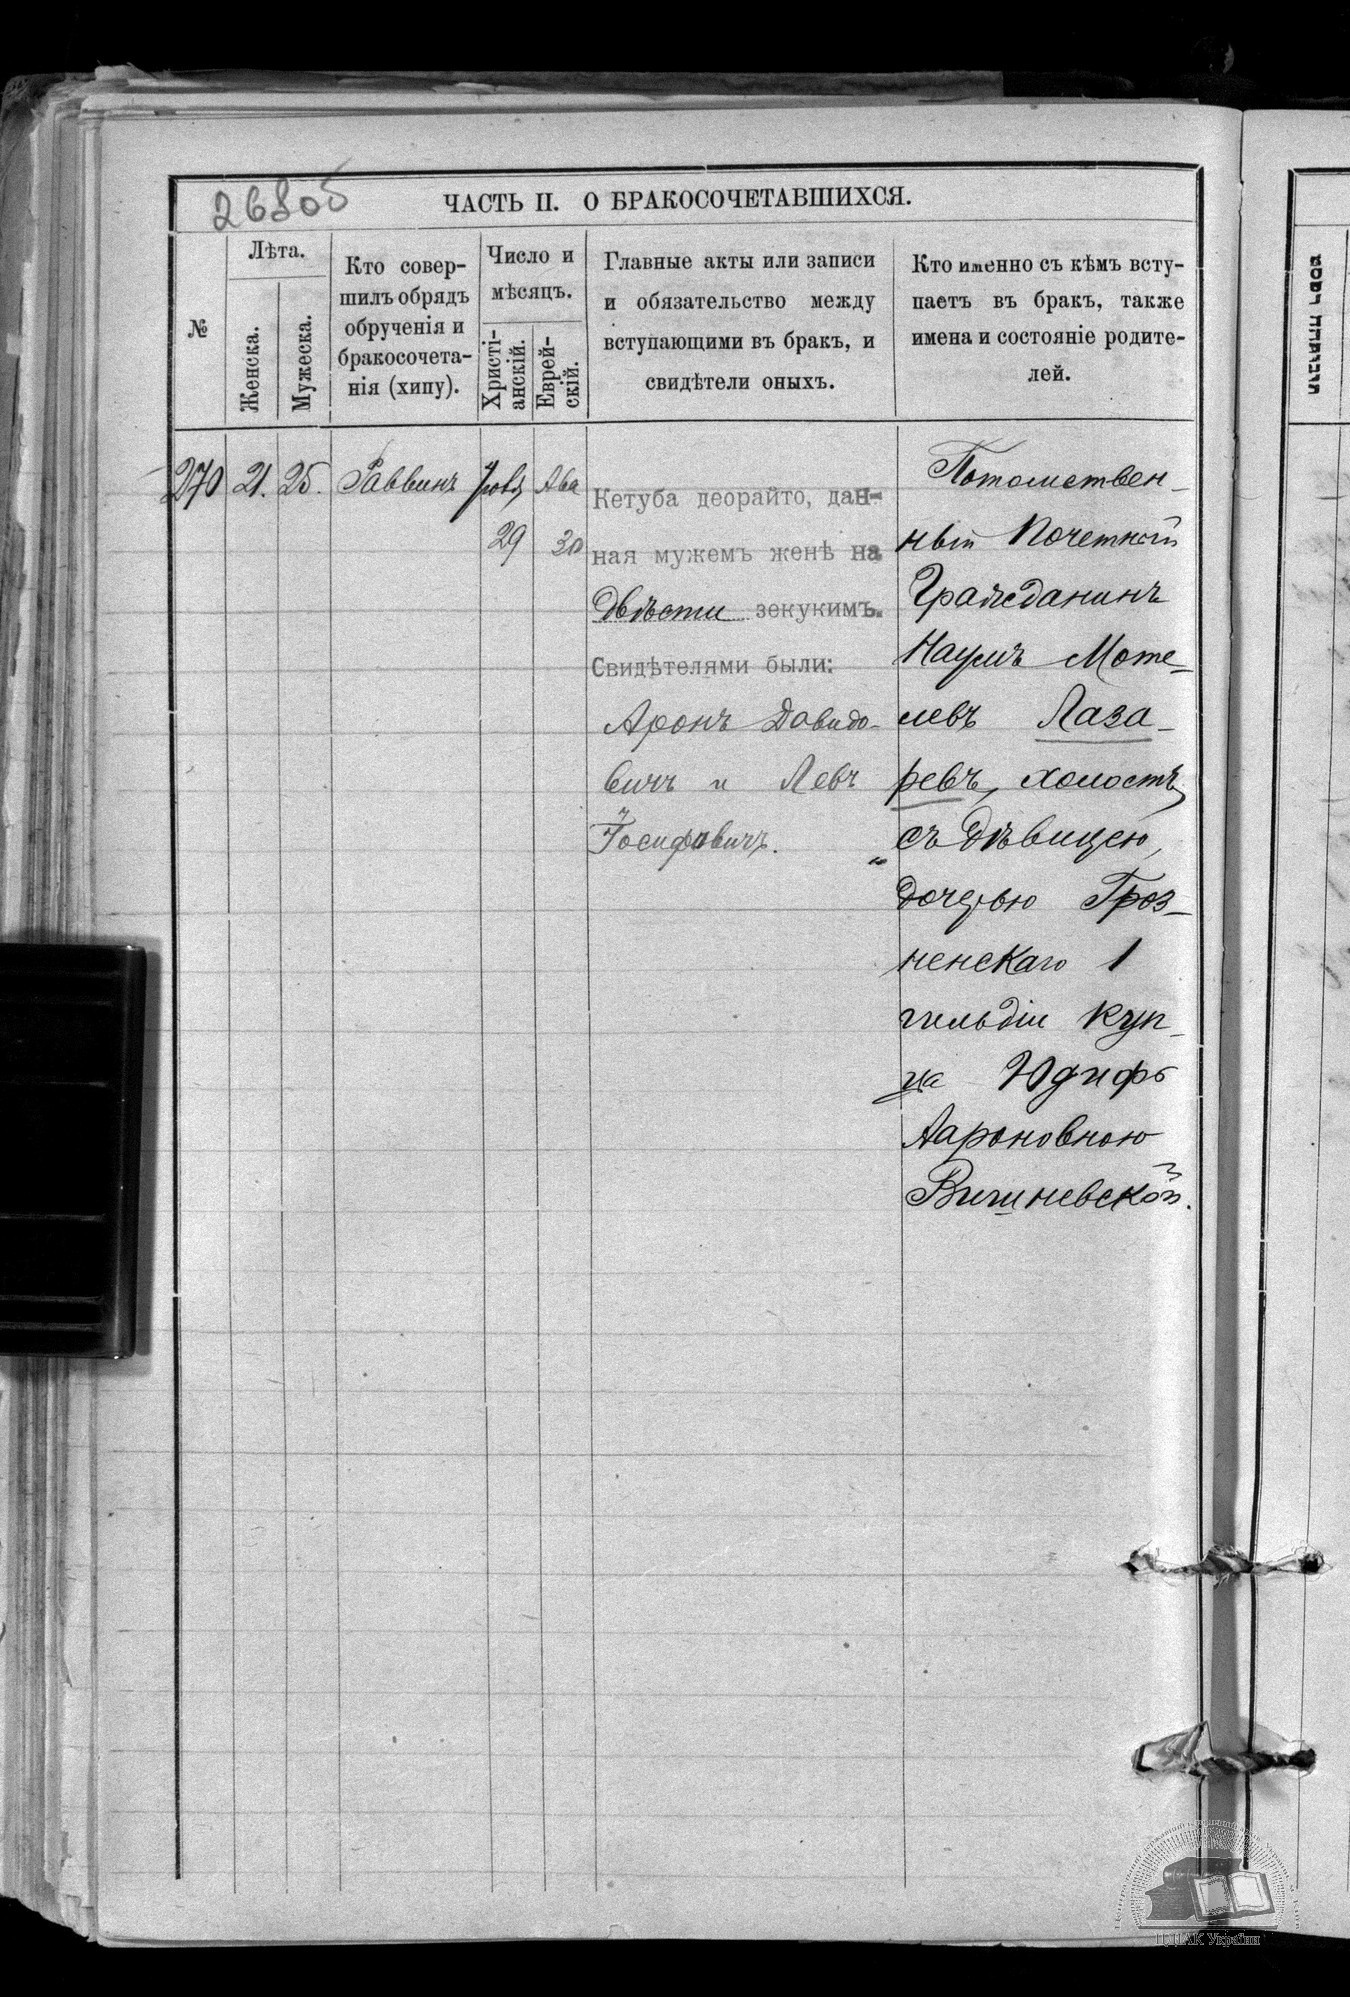 26805
ЧАСТЬ II. О БРАКОСОЧЕТАВШИХСЯ.
№
Лѣта.
Женска.
Мужеска.
Кто совер-
шилъ обрядъ
обрученія и
бракосочета-
нія (хипу).
Число и
мѣсяцъ.
Христі-
анскій.
Еврей-
скій.
Главные акты или записи
и обязательство между
вступающими въ бракъ, и
свидѣтели оныхъ.
Кто именно съ кѣмъ всту-
паетъ въ бракъ, также
имена и состояніе родите-
лей.
270 21. 25. Раввинъ
29
Ава
30
Кетуба деорайто, дан-
ная мужемъ женѣ на
Двѣсти зекукимъ.
Свидѣтелями были:
Аронъ Давидо-
вичъ и Левъ
Іосифовичъ.
Потомствен-
ный Почетный
Гражданинъ
Наумъ Моте-
левъ Лаза-
ревъ, холостъ,
съ дѣвицею,
дочерью Гроз-
ненскаго 1
гильдіи куп-
ца Юдифь
Аароновною
Вишневской.
ЦДІАК України